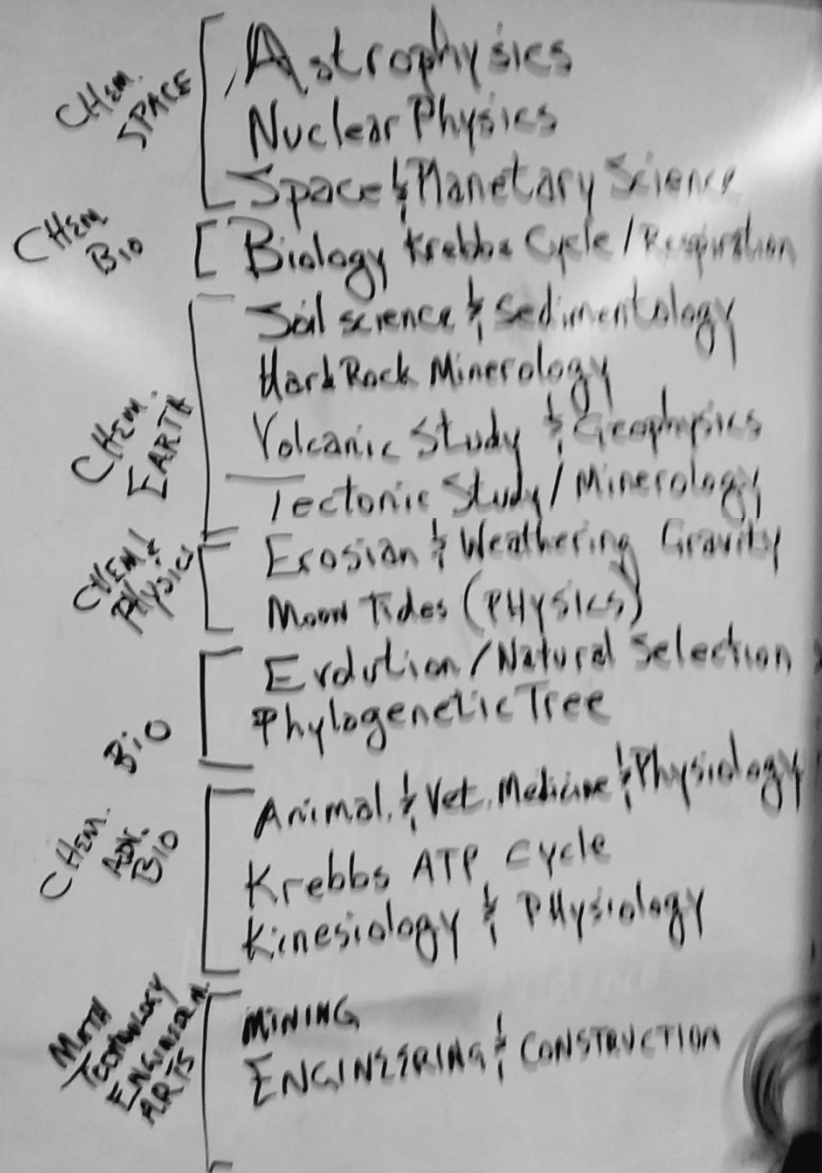 CHEM.
SPACE
Astrophysics
Nuclear Physics
Space & Planetary Science
CHEM
BIO
Biology Krebbs Cycle / Respiration
CHEM.
EARTH
Soil science & Sedimentology
Hard Rock Minerology
Volcanic Study & Geophysics
Tectonic Study / Minerology
CHEM &
PHYSICS
Erosian & Weathering Gravity
Moon Tides (PHYSICS)
BIO
Evolution / Natural Selection
Phylogenetic Tree
CHEM.
ADV.
BIO
Animal. & Vet. Medicine & Physiology
Krebbs ATP Cycle
Kinesiology & PHysiology
MATH
ARTS
MINING
ENGINEERING & CONSTRUCTION